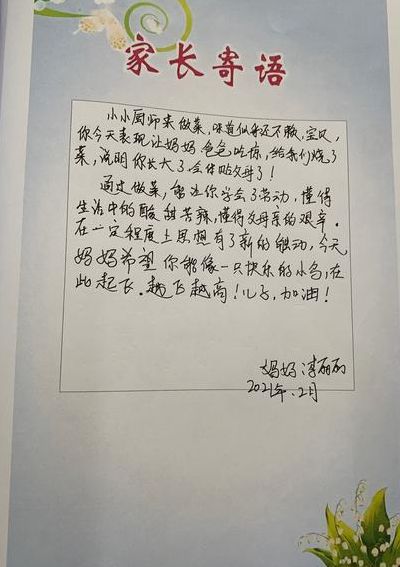 家长寄语
小小厨师来做菜,味道似乎还不散,宝贝,
你今天表现让妈妈爸爸吃惊,给我们烧了
菜,说明你长大了,会体贴父母了!
通过做菜,能让你学会了劳动,懂得
生活中的酸甜苦辣,懂得父母亲的艰辛.
在一定程度上思想有了新的触动,今天
妈妈希望你能像一只快乐的小鸟,在
此起飞.越飞越高!儿子,加油!
妈妈:李丽丽
2021年.2月